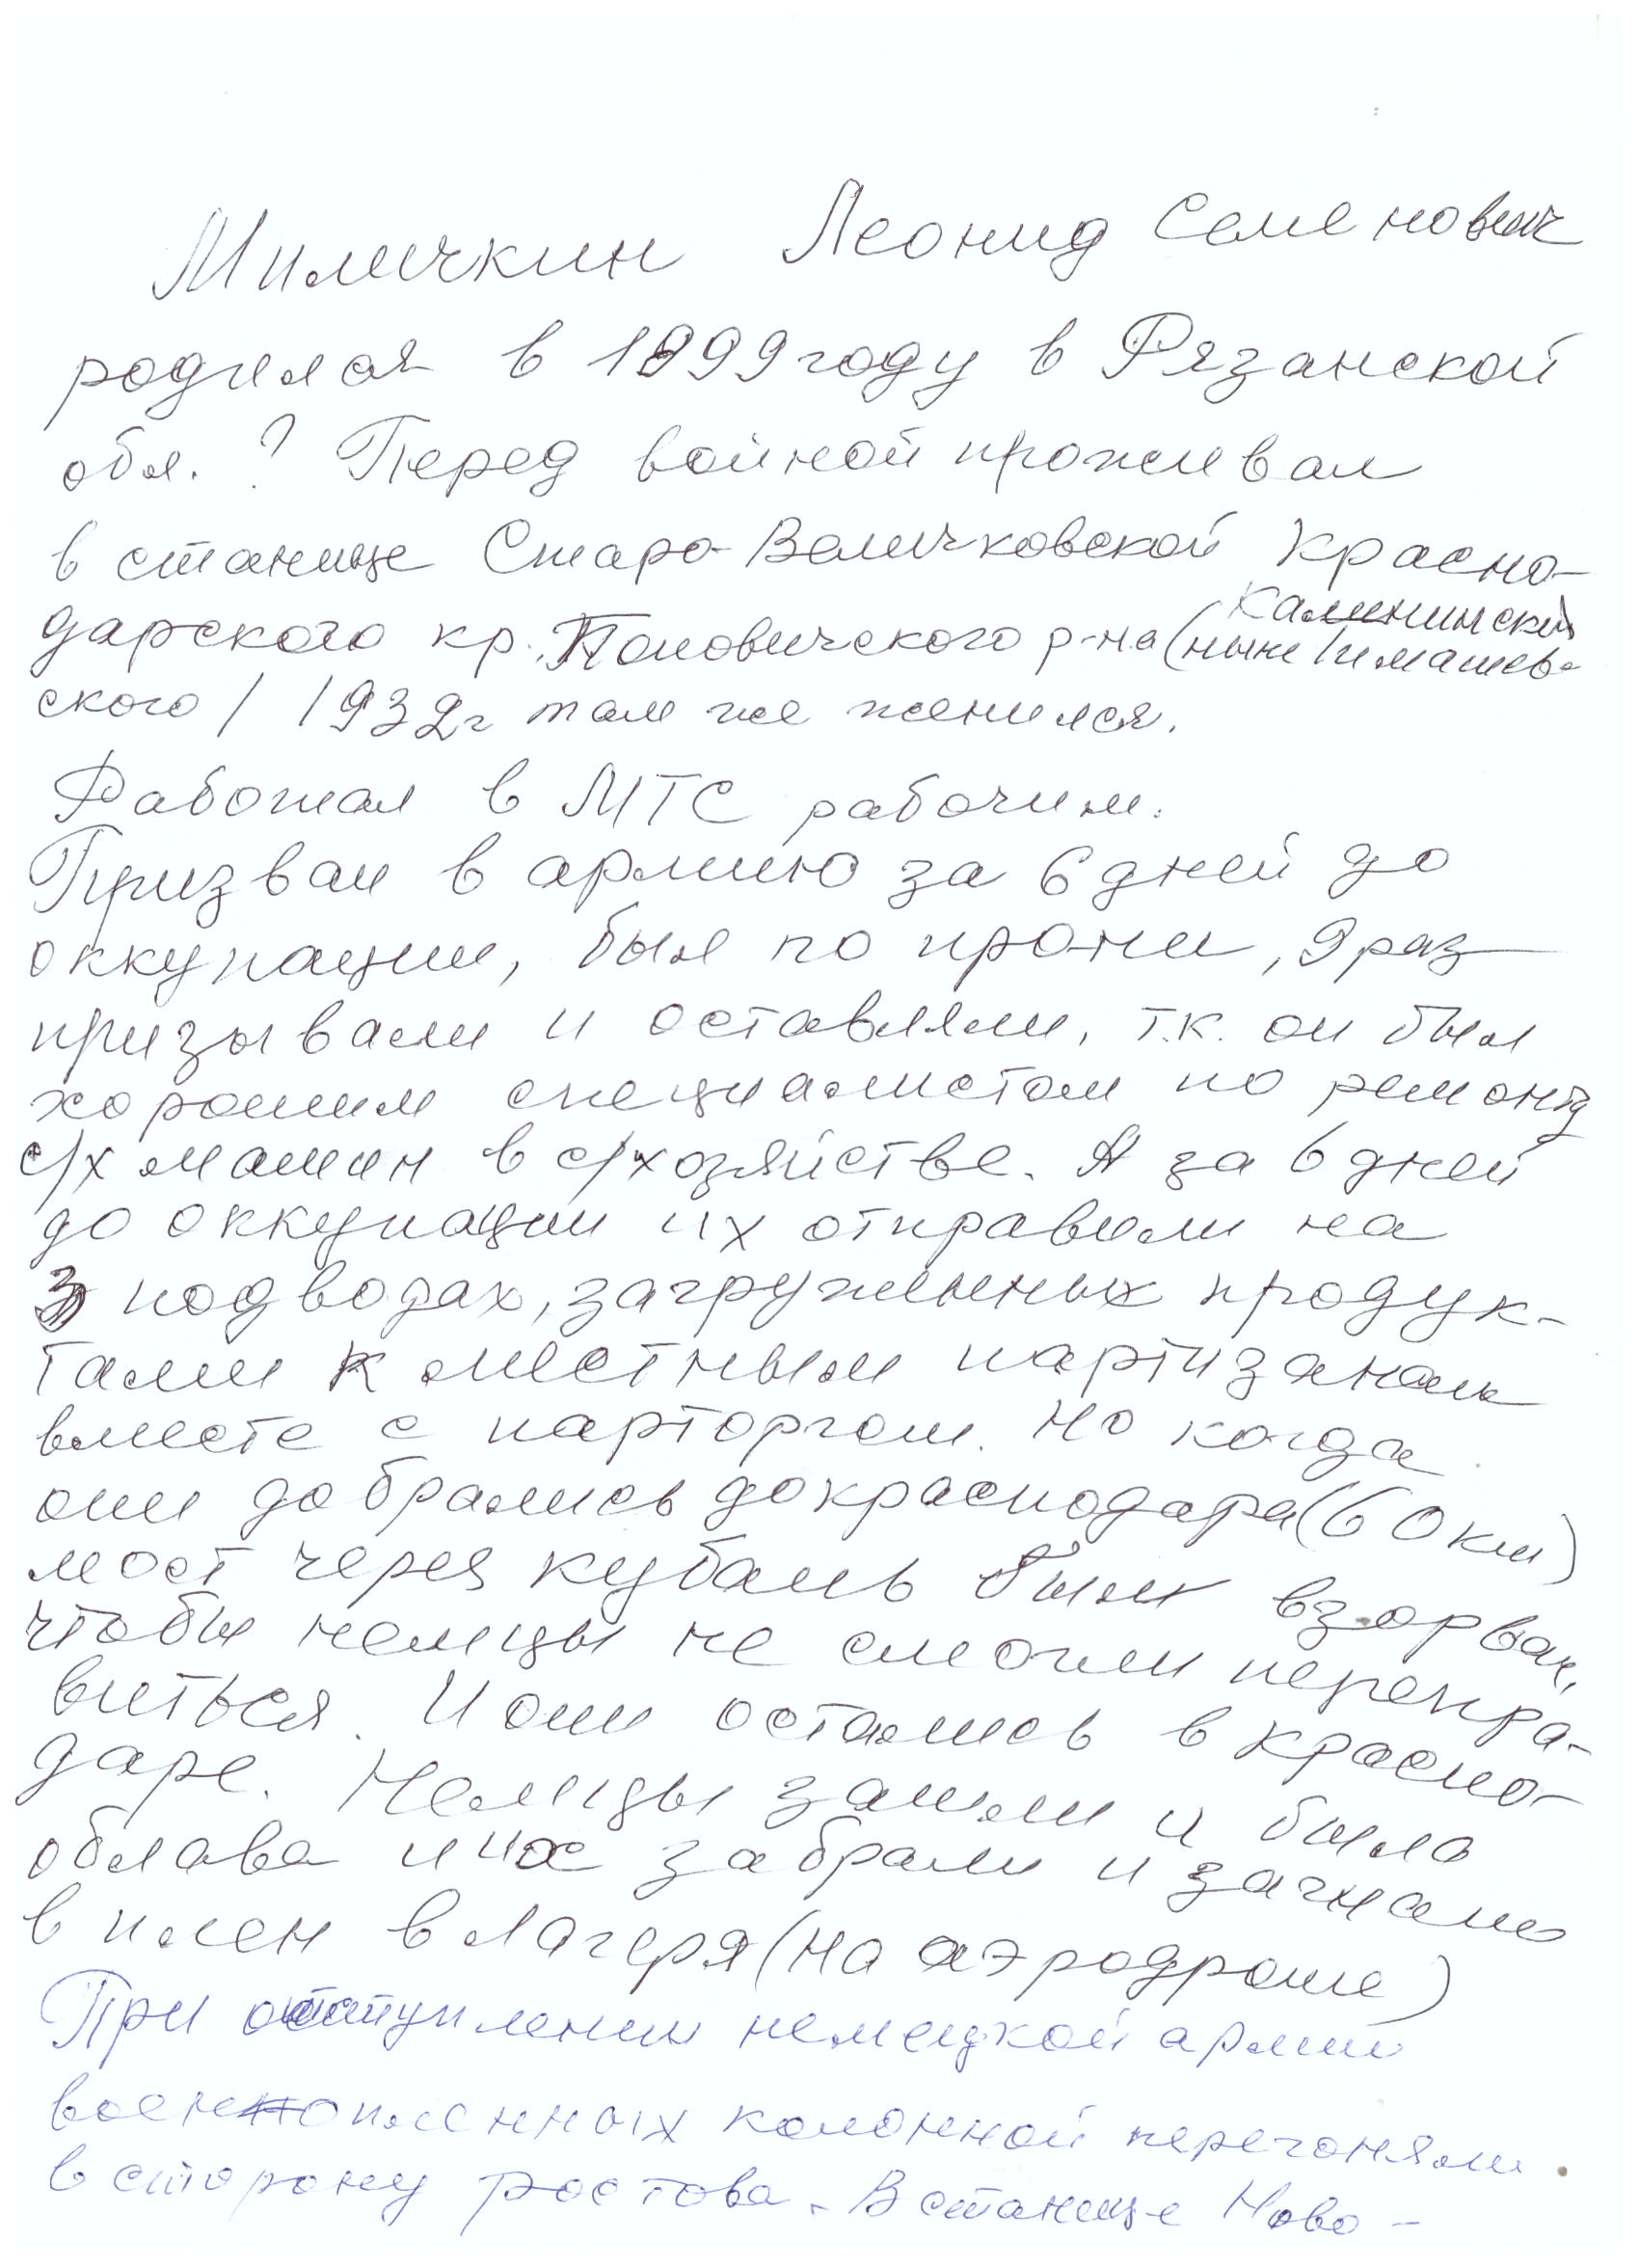 Миличкин Леонид Семенович
родился в 1899 году в Рязанской
обл. ? Перед войной проживал
в станице Старо-Величковской Красно-
Калининский
дарского кр. Поповического р-на (ныне Тимашев-
ского / 1932г там же женился.
Работал в МТС рабочим.
Призван в армию за 6 дней до
оккупации, был по прони, 9 раз
призывали и оставляли, т.к. он был
хорошим специалистом по ремонту
с/х машин в с/хозяйстве. А за 6 дней
до оккупации их отправили на
3 подводах, загруженных продук-
тами к местным партизанам
вместе с парторгом. Но когда
они добрались до краснодара (60 км)
мост через кубань был взорван,
чтобы немцы не смогли перепра-
виться. И они остались в красно-
даре. Немцы зашли и была
облава и их забрали и загнали
в плен в лагеря (на аэродроме)
При отступлении немецкой армии
военнопленных колонной перегоняли
в сторону Ростова. В станице Ново-